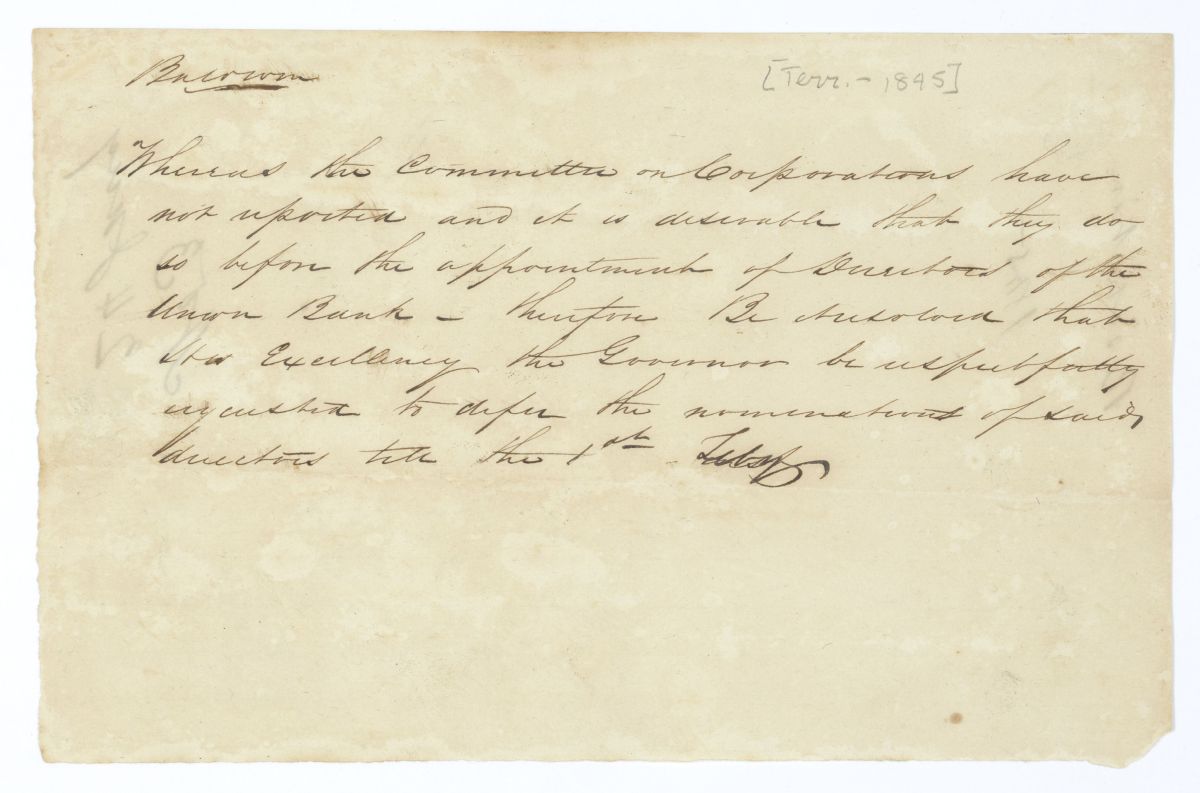 Baldwin
[Terr. - 1845]
Whereas the Committee on Corporations have
not reported and it is desirable that they do
so before the appointment of Directors of the
Union Bank - therefore Be it resolved that
His Excellency the Governor be respectfully
requested to defer the nominations of said
directors till the 1st Feby